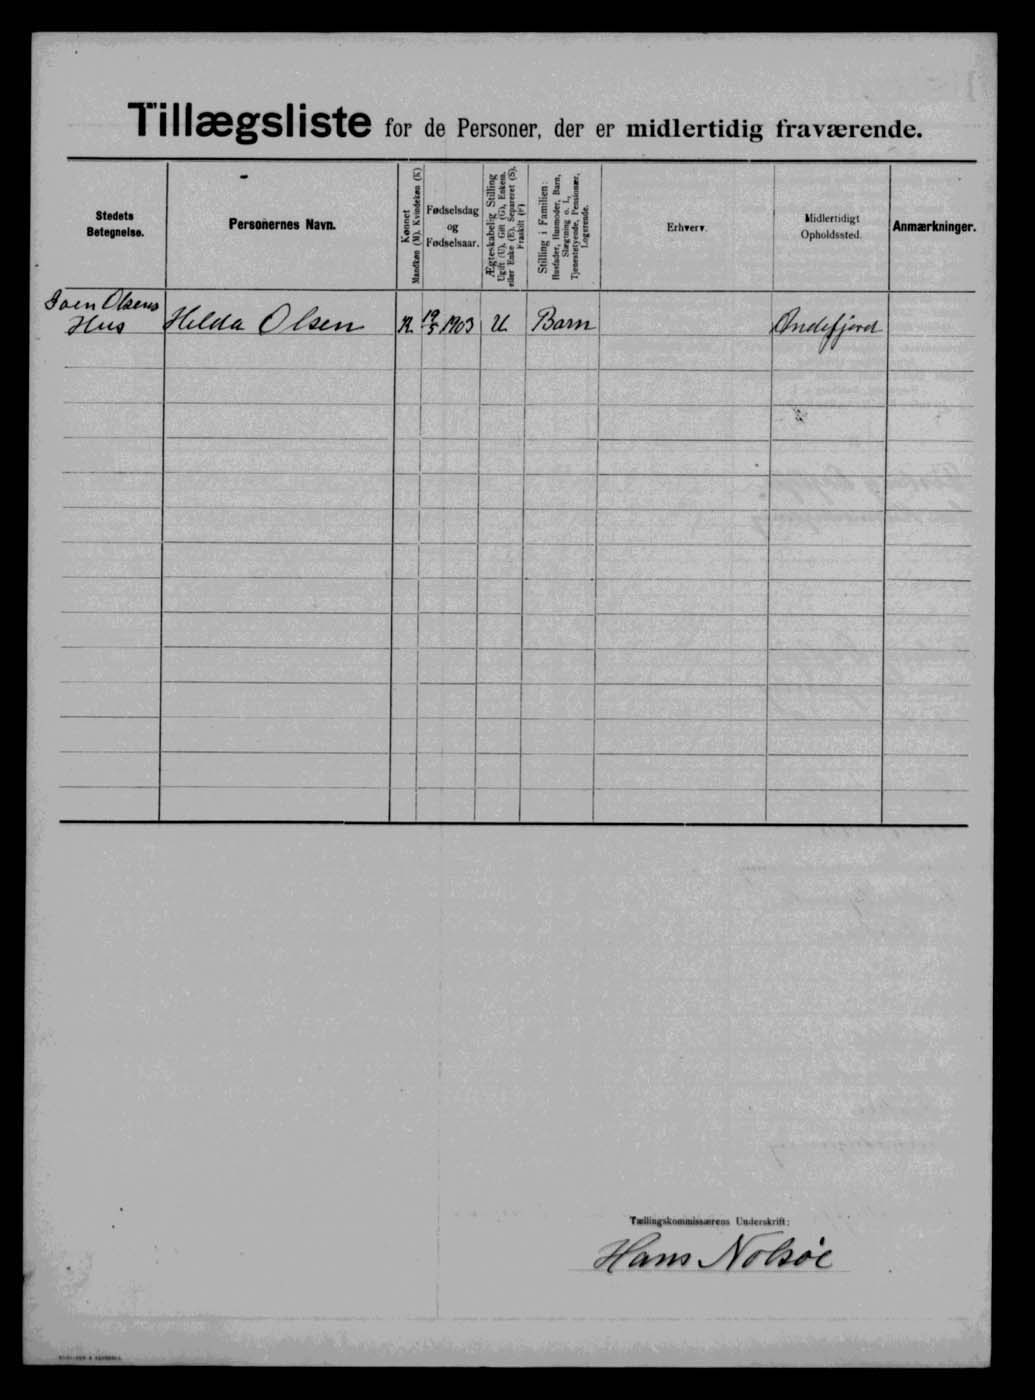 Tillægsliste for de Personer, der er midlertidig fraværende.
Stedets Betegnelse.
Personernes Navn.
Kønnet
Mandkøn (M), Kvindekøn (K)
Fødselsdag
og
Fødselsaar.
Ægteskabelig Stilling
Ugift (U), Gift (G), Enkem.
eller Enke (E), Separeret (S),
Fraskilt (F)
Stilling i Familien:
Husfader, Husmoder, Barn,
Slægtning o. l.,
Tjenestetyende, Pensionær,
Logerende.
Erhverv.
Midlertidigt
Opholdssted.
Anmærkninger.
Joen Olsens
Hus Helda Olsen K. 19/5 1903 U Barn Øndefjord
Tællingskommissærens Underskrift:
Hans Nolsøe